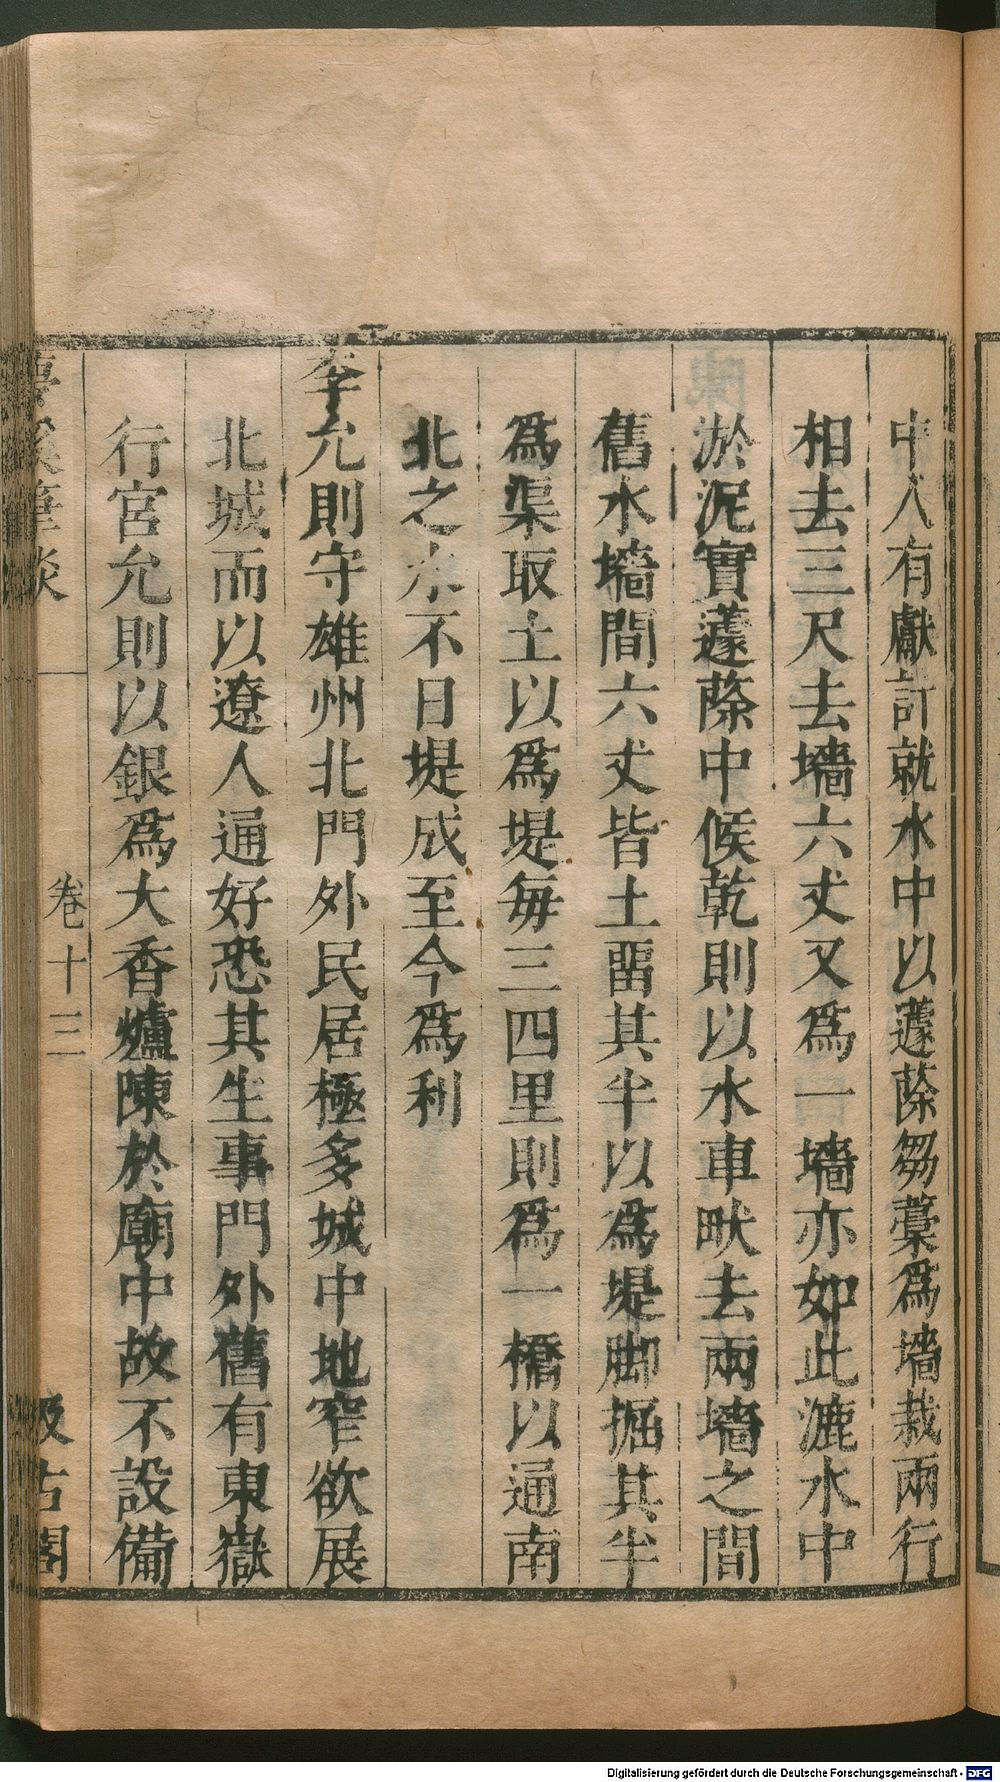 中人有獻計就水中以蘧蒢芻藁爲墻栽兩行
相去三尺去墻六丈又爲一墻亦如此漉水中
淤泥實蘧蒢中候乾則以水車畎去兩墻之間
舊水墻間六丈皆土畱其半以爲堤脚掘其半
爲渠取土以爲堤每三四里則爲一橋以通南
北之水不日堤成至今爲利
李允則守雄州北門外民居極多城中地窄欲展
北城而以遼人通好恐其生事門外舊有東嶽
行宮允則以銀爲大香爐陳於廟中故不設備
夢溪筆談 卷十三 汲古閣
Digitalisierung gefördert durch die Deutsche Forschungsgemeinschaft - DFG